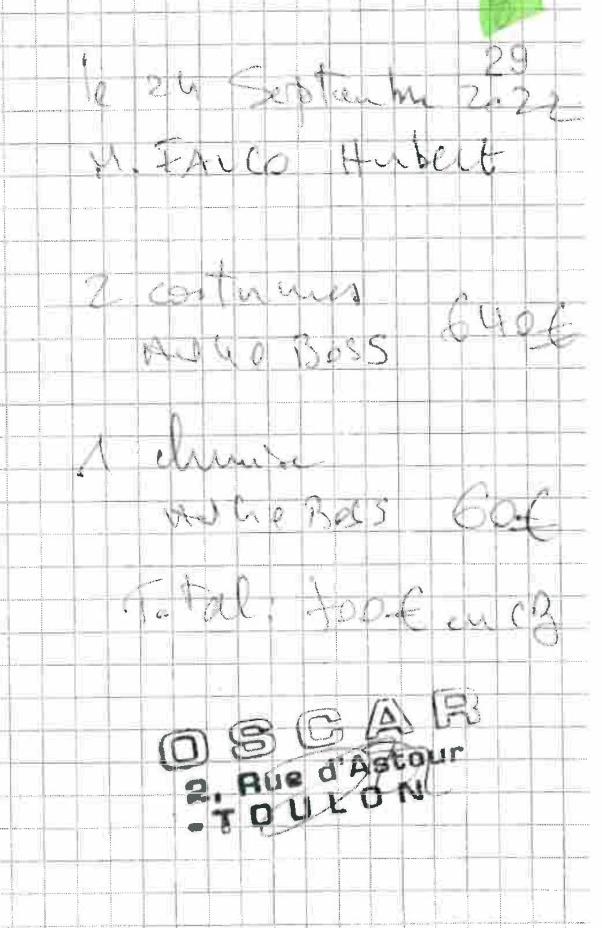 29
le 24 Septembre 2022
M. FALCO Hubert
2 costumes
HUGO BOSS 640€
1 chemise
HUGO BOSS 60€
Total: 700€ en CB
OSCAR
2, Rue d'Astour
- TOULON